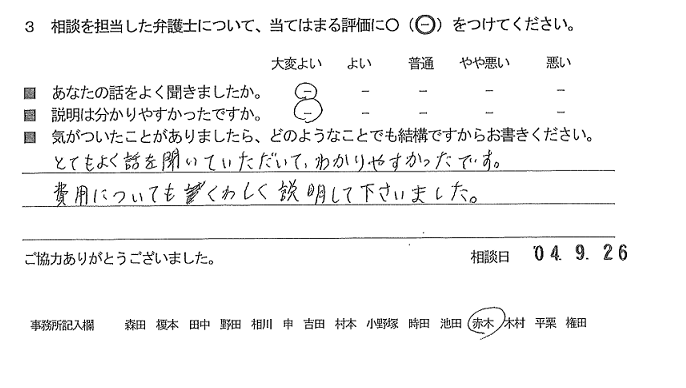 3 相談を担当した弁護士について、当てはまる評価に○（㊀）をつけてください。
大変よい よい 普通 やや悪い 悪い
■ あなたの話をよく聞きましたか。 － － － － －
■ 説明は分かりやすかったですか。 － － － － －
■ 気がついたことがありましたら、どのようなことでも結構ですからお書きください。
とてもよく話を聞いていただいて、わかりやすかったです。
費用についてもくわしく説明して下さいました。
ご協力ありがとうございました。 相談日 '04. 9. 26
事務所記入欄 森田 榎本 田中 野田 相川 申 吉田 村本 小野塚 時田 池田 赤木 木村 平栗 権田